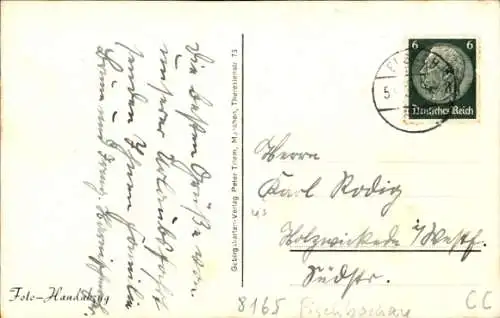 Die besten Grüße von
unserer Urlaubsfahrt
senden Ihnen Familie
Foto-Handabzug
Gebirgskarten-Verlag Peter Thiem, München, Theresienstr. 75
6 6
Deutsches Reich
5
Herrn
Karl Rodig
Holzwickede i/Westf.
Südstr.
8165 Fischbachau CC